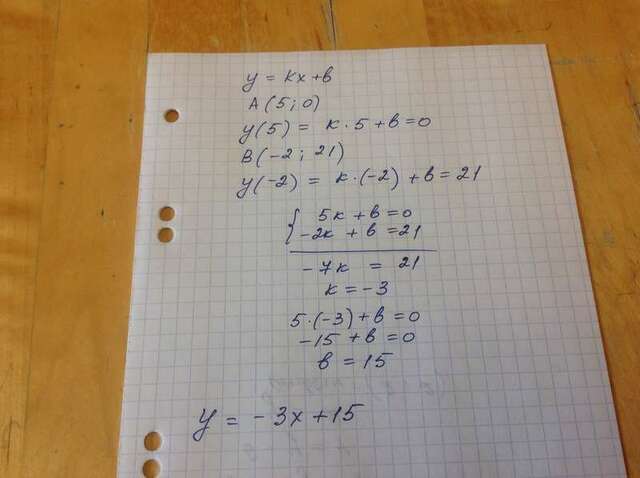 y = kx + b
A (5 ; 0)
y(5) = k · 5 + b = 0
B (-2 ; 21)
y(-2) = k · (-2) + b = 21
{ 5k + b = 0
-2k + b = 21
-7k = 21
k = -3
5 · (-3) + b = 0
-15 + b = 0
b = 15
y = -3x + 15